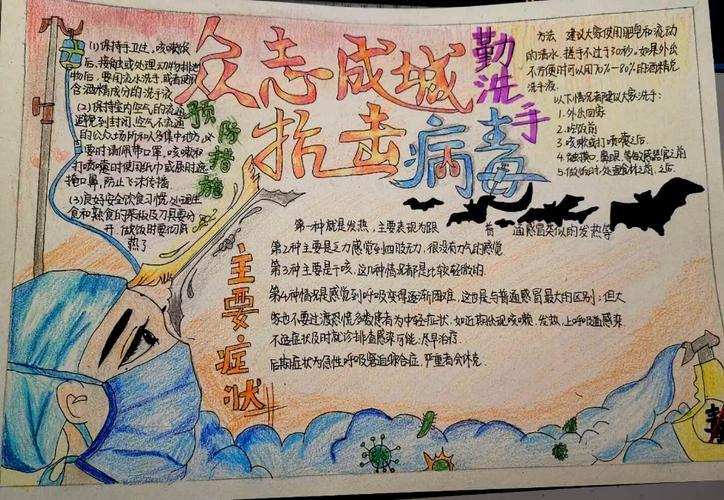 众志成城
抗击病毒
勤洗手
预防措施
(1)保持手卫生,咳嗽饭
后,接触或处理动物排泄
物后,要用流水洗手,或者使用
含酒精成分的洗手液
(2)保持室内空气的流通
避免到封闭,空气不流通
的公众场所和人多集中地方,必
要时请佩带口罩,咳嗽和
打喷嚏时使用纸巾或屈肘遮
掩口鼻,防止飞沫传播
(3)良好安全饮食习惯,处理生
食和熟食的菜板及刀具要分
开,做饭时要彻底
熟了
方法 建议大家使用肥皂和流动
的清水,搓手不过于30秒,如果外出
不方便时可以用70%-80%的酒精免
洗手液.
以下情况都建议大家洗手:
1,外出回家
2,吃饭前
3.咳嗽或打喷嚏之后.
4,触摸口,鼻眼,等敏感器官之前
5,做饭时,处理食材之前,之后.
主要症状
第一种就是发热,主要表现为跟 普通感冒类似的发热等
第2种主要是乏力感觉到四肢无力,很没有力气的感觉
第3种主要是干咳,这几种情都是比较轻微的.
第4种情况是感觉到呼吸变得逐渐困难,这也是与普通感冒最大的区别;但大
家也不要过渡恐慌多数患者为中轻症状,如近期出现咳嗽.发热,上呼吸道感染
不适症状及时就诊排查感染可能,尽早治疗.
后期症状为急性呼吸窘迫综合症,严重者会休克.